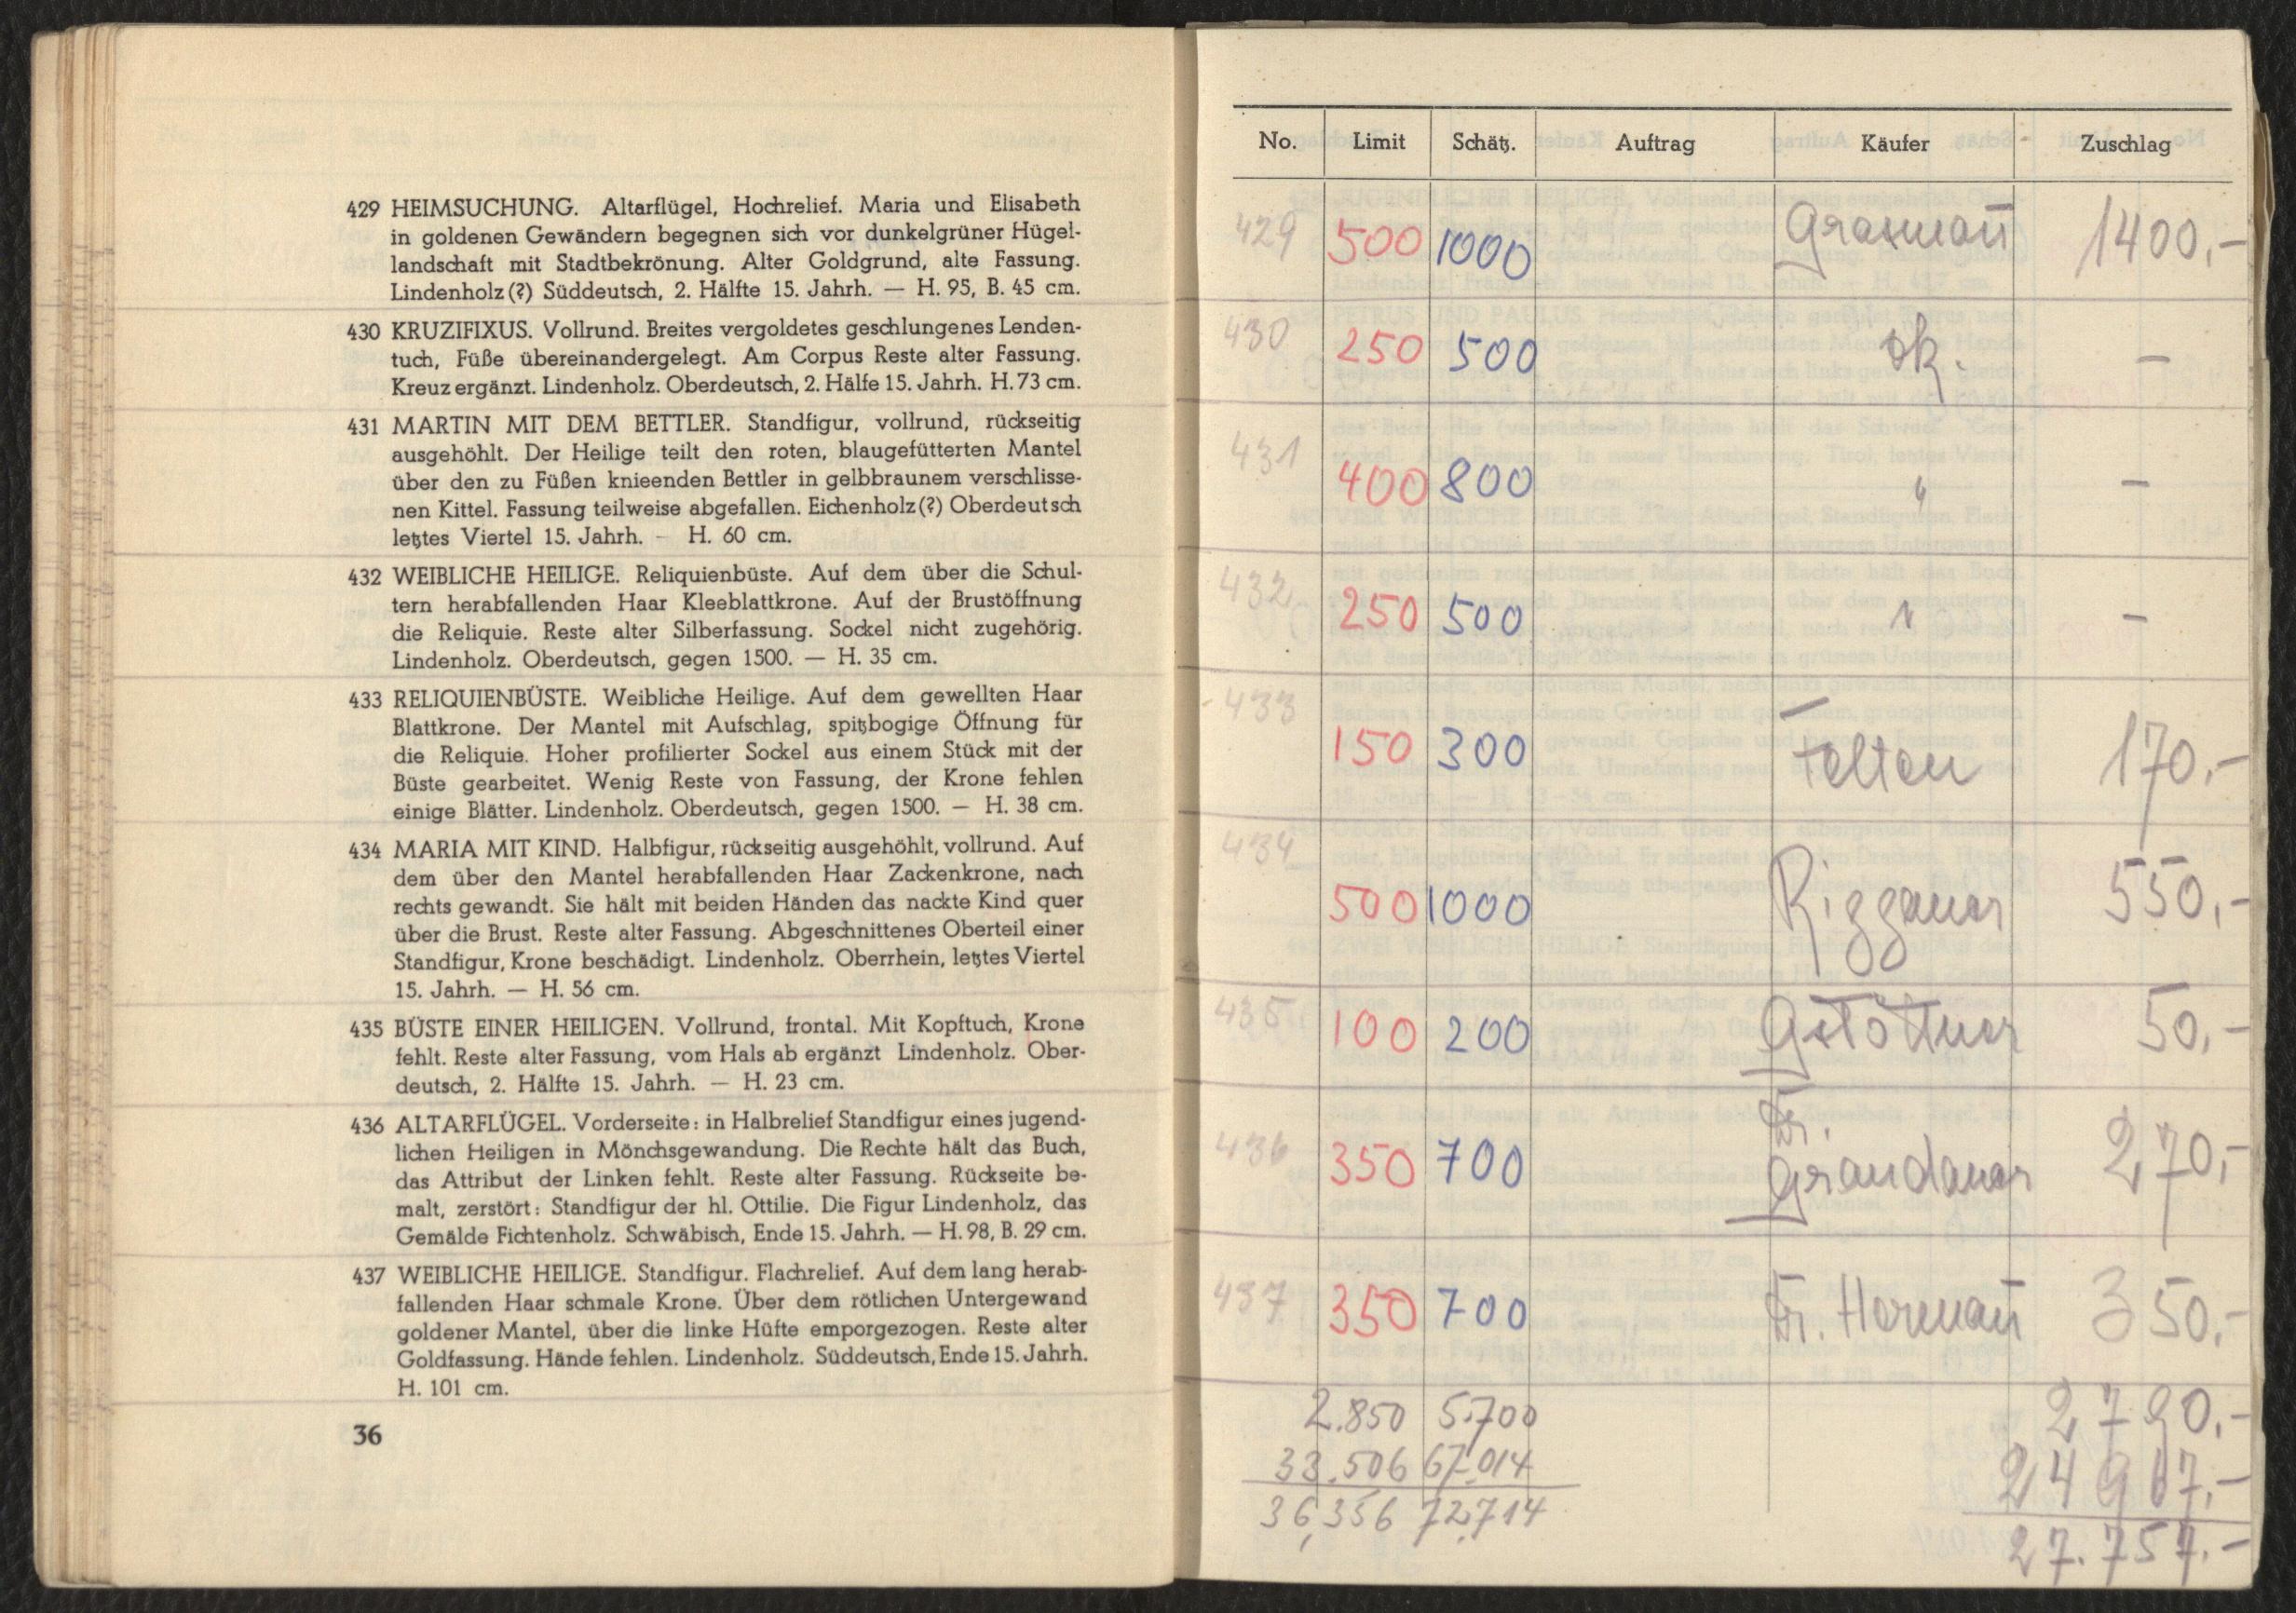 429 HEIMSUCHUNG. Altarflügel, Hochrelief. Maria und Elisabeth
in goldenen Gewändern begegnen sich vor dunkelgrüner Hügel-
landschaft mit Stadtbekrönung. Alter Goldgrund, alte Fassung.
Lindenholz(?) Süddeutsch, 2. Hälfte 15. Jahrh. — H. 95, B. 45 cm.
430 KRUZIFIXUS. Vollrund. Breites vergoldetes geschlungenes Lenden-
tuch, Füße übereinandergelegt. Am Corpus Reste alter Fassung.
Kreuz ergänzt. Lindenholz. Oberdeutsch, 2. Hälfe 15. Jahrh. H. 73 cm.
431 MARTIN MIT DEM BETTLER. Standfigur, vollrund, rückseitig
ausgehöhlt. Der Heilige teilt den roten, blaugefütterten Mantel
über den zu Füßen knieenden Bettler in gelbbraunem verschlisse-
nen Kittel. Fassung teilweise abgefallen. Eichenholz(?) Oberdeutsch
letztes Viertel 15. Jahrh. — H. 60 cm.
432 WEIBLICHE HEILIGE. Reliquienbüste. Auf dem über die Schul-
tern herabfallenden Haar Kleeblattkrone. Auf der Brustöffnung
die Reliquie. Reste alter Silberfassung. Sockel nicht zugehörig.
Lindenholz. Oberdeutsch, gegen 1500. — H. 35 cm.
433 RELIQUIENBÜSTE. Weibliche Heilige. Auf dem gewellten Haar
Blattkrone. Der Mantel mit Aufschlag, spitzbogige Öffnung für
die Reliquie. Hoher profilierter Sockel aus einem Stück mit der
Büste gearbeitet. Wenig Reste von Fassung, der Krone fehlen
einige Blätter. Lindenholz. Oberdeutsch, gegen 1500. — H. 38 cm.
434 MARIA MIT KIND. Halbfigur, rückseitig ausgehöhlt, vollrund. Auf
dem über den Mantel herabfallenden Haar Zackenkrone, nach
rechts gewandt. Sie hält mit beiden Händen das nackte Kind quer
über die Brust. Reste alter Fassung. Abgeschnittenes Oberteil einer
Standfigur, Krone beschädigt. Lindenholz. Oberrhein, letztes Viertel
15. Jahrh. — H. 56 cm.
435 BÜSTE EINER HEILIGEN. Vollrund, frontal. Mit Kopftuch, Krone
fehlt. Reste alter Fassung, vom Hals ab ergänzt Lindenholz. Ober-
deutsch, 2. Hälfte 15. Jahrh. — H. 23 cm.
436 ALTARFLÜGEL. Vorderseite: in Halbrelief Standfigur eines jugend-
lichen Heiligen in Mönchsgewandung. Die Rechte hält das Buch,
das Attribut der Linken fehlt. Reste alter Fassung. Rückseite be-
malt, zerstört: Standfigur der hl. Ottilie. Die Figur Lindenholz, das
Gemälde Fichtenholz. Schwäbisch, Ende 15. Jahrh. — H. 98, B. 29 cm.
437 WEIBLICHE HEILIGE. Standfigur. Flachrelief. Auf dem lang herab-
fallenden Haar schmale Krone. Über dem rötlichen Untergewand
goldener Mantel, über die linke Hüfte emporgezogen. Reste alter
Goldfassung. Hände fehlen. Lindenholz. Süddeutsch, Ende 15. Jahrh.
H. 101 cm.
36
No. Limit Schätz. Auftrag Käufer Zuschlag
429 500 1000 1400,-
430 250 500 –
431 400 800 " –
432 250 500 " –
433 150 300 Felten 170,-
434 500 1000 Riggauer 550,-
435 100 200 Gstöttner 50,-
436 350 700 Dr. Graudauer 270,-
437 350 700 Dr. Hermañ 350,-
2.850 5.700 2790,-
33.506 67.014 24967,-
36,356 72,714 27.757.-